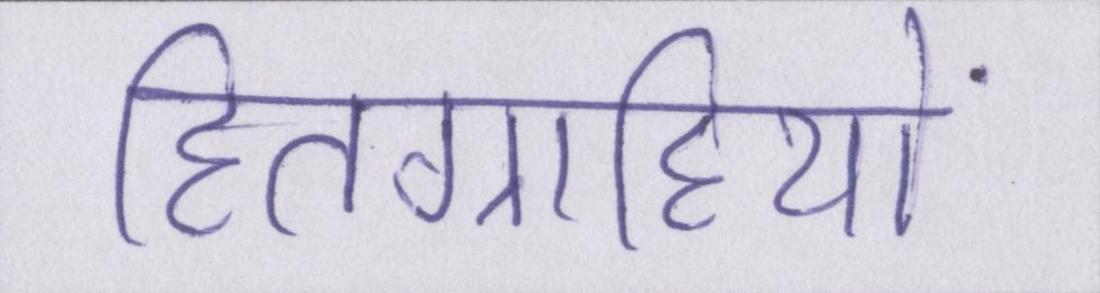 हितग्राहियों